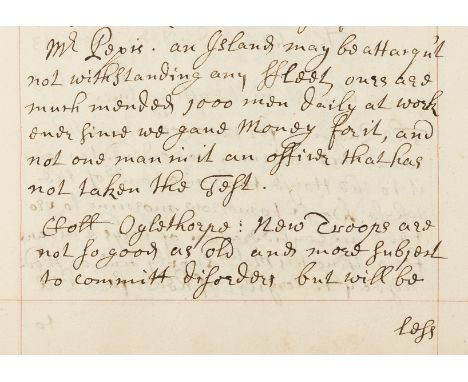 Mr Pepis. an Island may be attaqu't
not withstanding any ffleet, ours are
much mended, 1000 men daily at work
ever since we gave Money for it, and
not one man in it an officer that has
not taken the Test.
Coll Oglethorpe: New Troops are
not so good as old and more subject
to committ disorders but will be
less